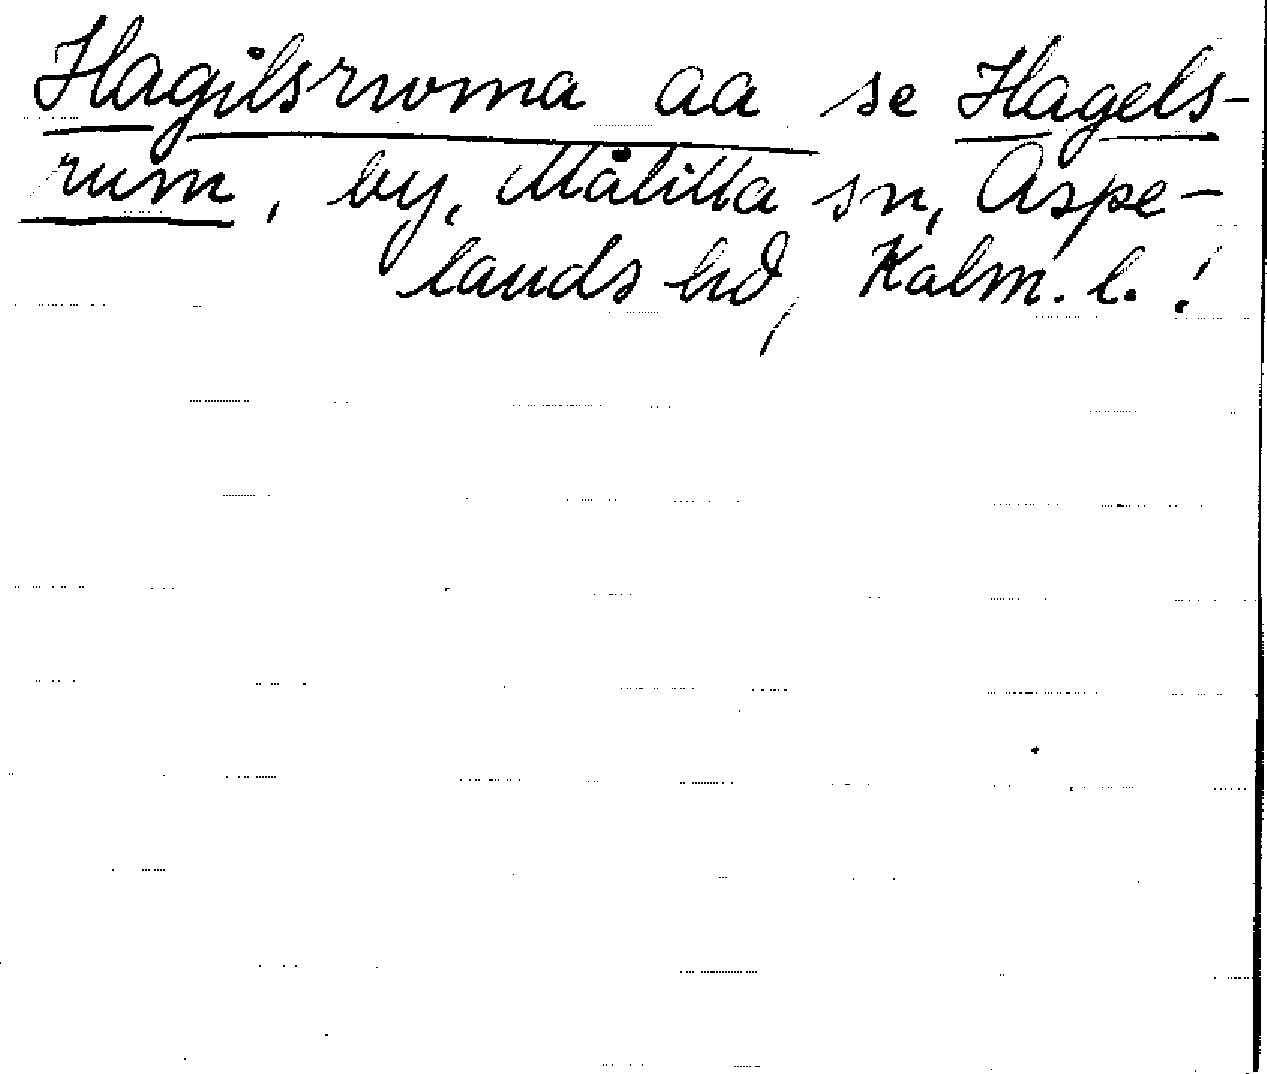 Hagilsrwma aa se Hagels-
rum, by, Målilla sn, Aspe-
lands hd, Kalm. l.!